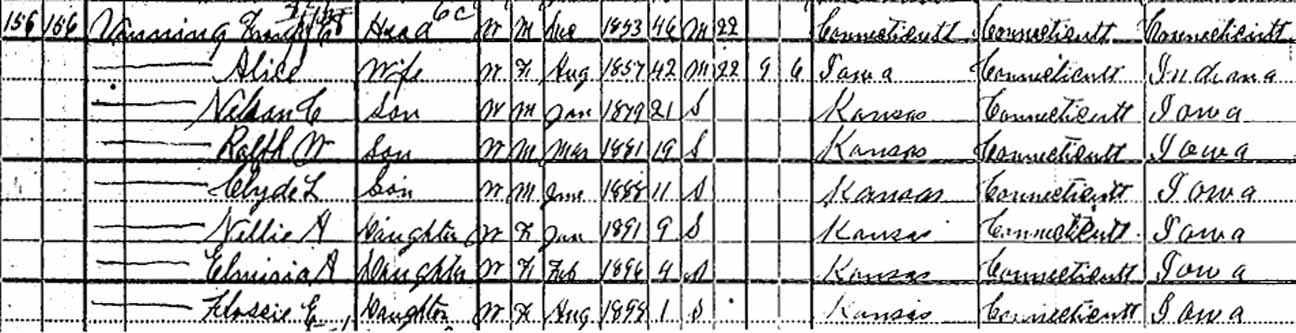 156 156 Vinning Head W M Dec 1853 46 M 22 Connecticutt Connecticutt Connecticutt
Alice Wife W F Aug 1857 42 M 22 9 6 Iowa Connecticutt Indiana
Nelson C Son W M Jan 1879 21 S Kansas Connecticutt Iowa
Ralph W Son W M Mar 1881 19 S Kansas Connecticutt Iowa
Clyde L Son W M June 1888 11 S Kansas Connecticutt Iowa
Nellie A Daughter W F Jan 1891 9 S Kansas Connecticutt Iowa
Elmina A Daughter W F Feb 1896 4 S Kansas Connecticutt Iowa
Flossie E Daughter W F Aug 1898 1 S Kansas Connecticutt Iowa